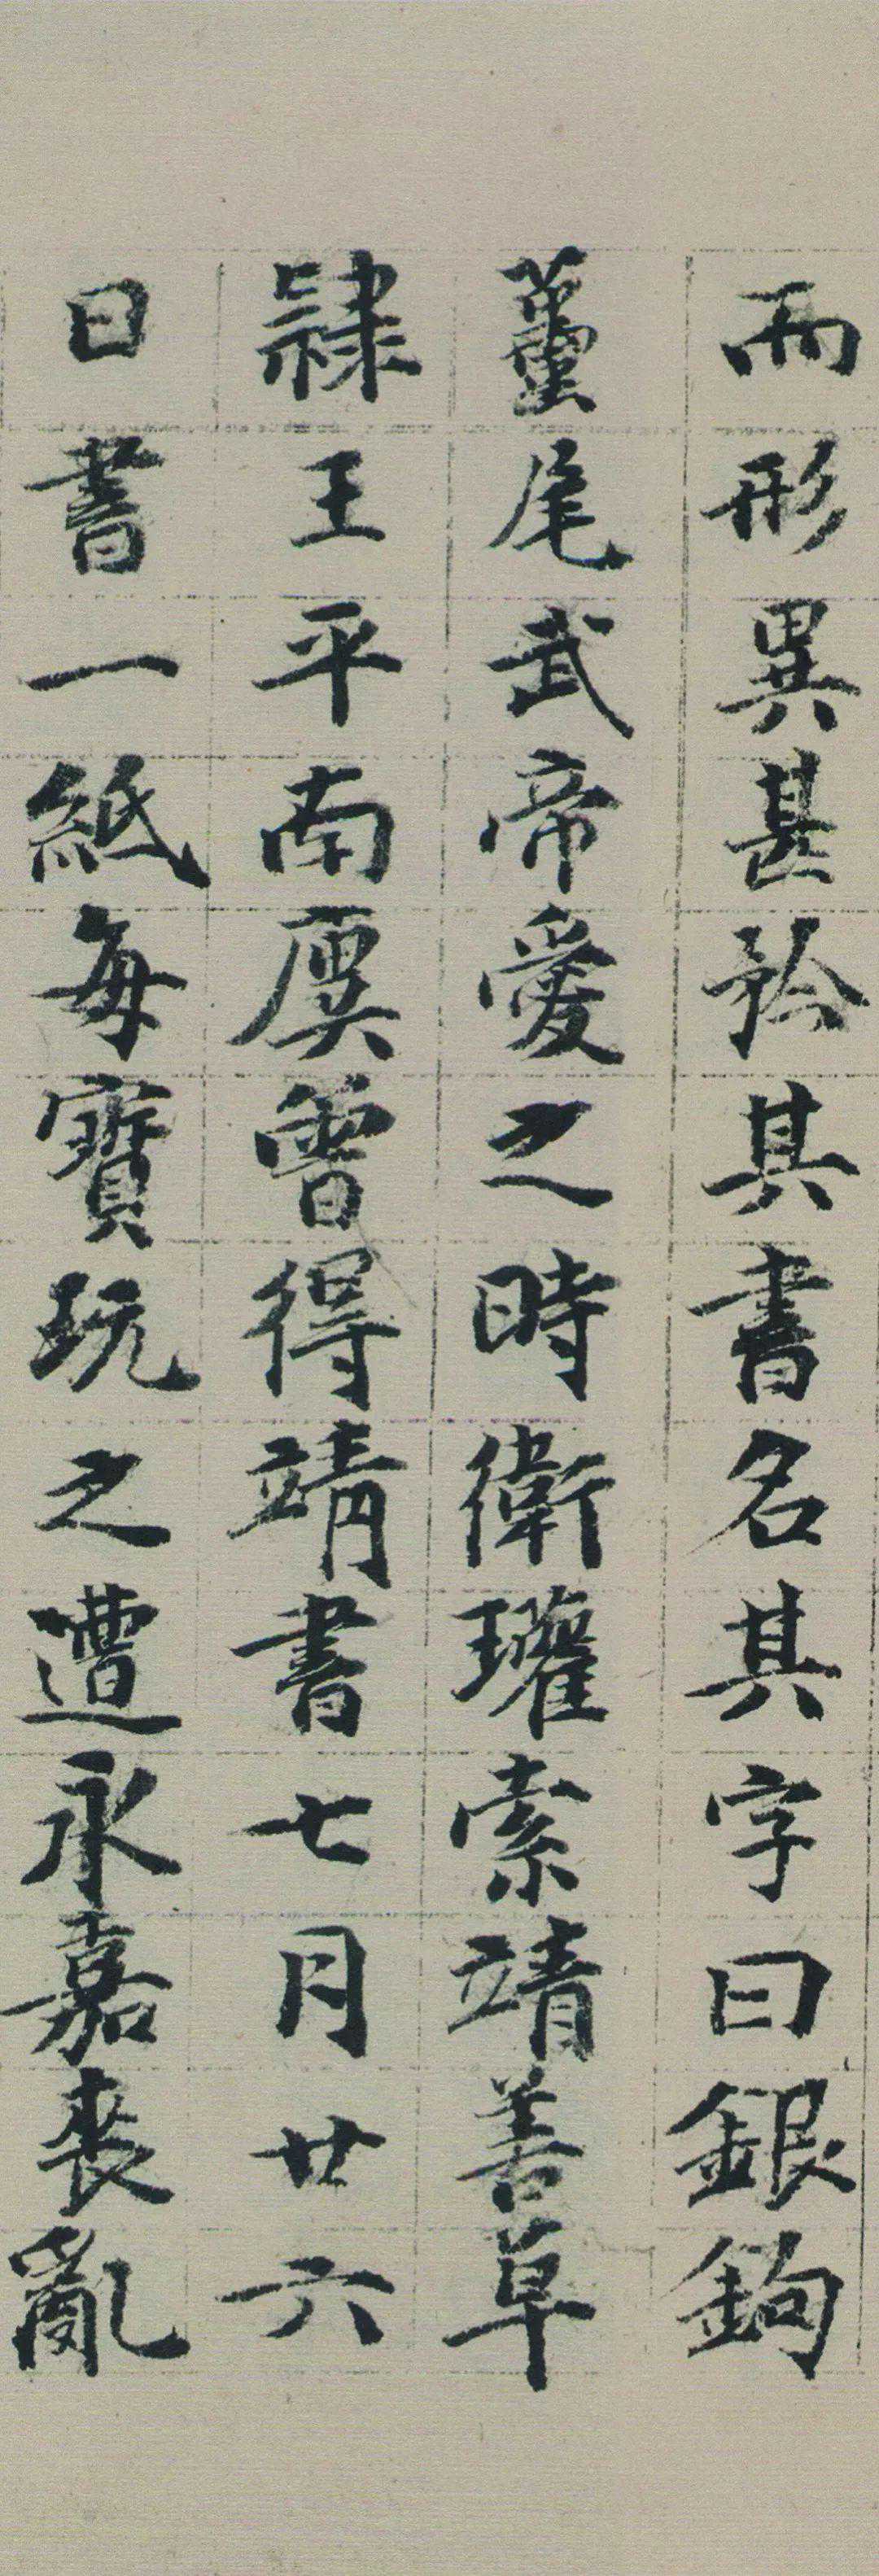 而形異甚矜其書名其字曰銀鉤
蠆尾武帝愛之時衛瓘索靖善草
隸王平南廙曾得靖書七月廿六
日書一紙每寶玩之遭永嘉喪亂